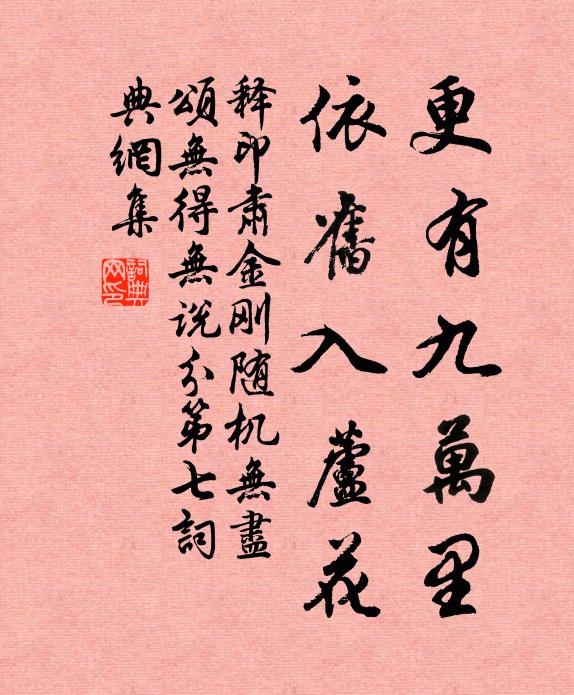 更有九萬里
依舊入蘆花
释印肅金刚随机無盡
頌無得無说分第七詞
典網集
詞典
网印